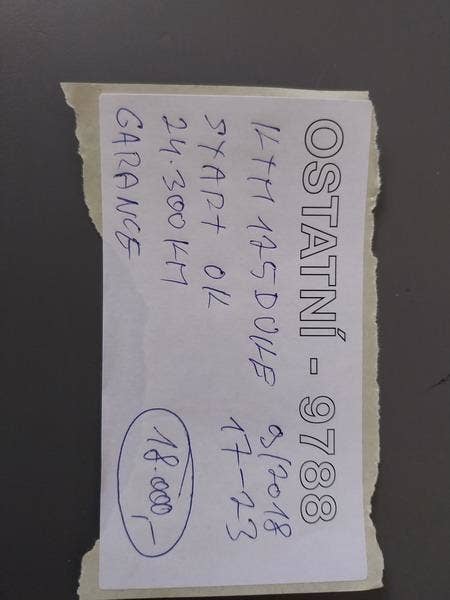 OSTATNÍ - 9788
KTM 125 DUKE 09/2018
START OK 17-23
24.300 KM
GARANCE 18.000,-